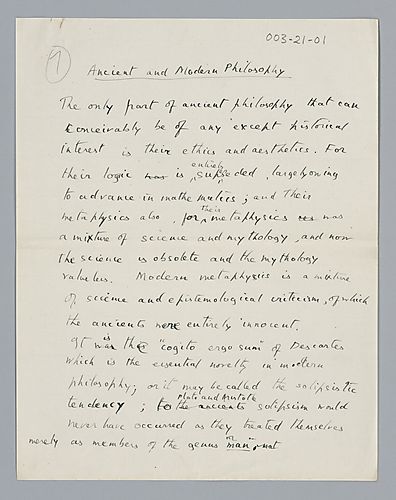 003-21-01
1
Ancient and Modern Philosophy
The only part of ancient philosophy that can
conceivably be of any except historical
interest is their ethics and aesthetics. For
their logic was is entirely superseded, largely owing
to advance in mathematics; and their
metaphysics also, for their metaphysics was was
a mixture of science and mythology, and now
the science is obsolete and the mythology
valueless. Modern metaphysics is a mixture
of science and epistemological criticism, of which
the ancients were entirely innocent.
It was is the "cogito ergo sum" of Descartes
which is the essential novelty in modern
philosophy; or it may be called the solipsistic
tendency; to the ancients Plato and Aristotle solipsism would
never have occurred as they treated themselves
merely as members of the genus "man", not